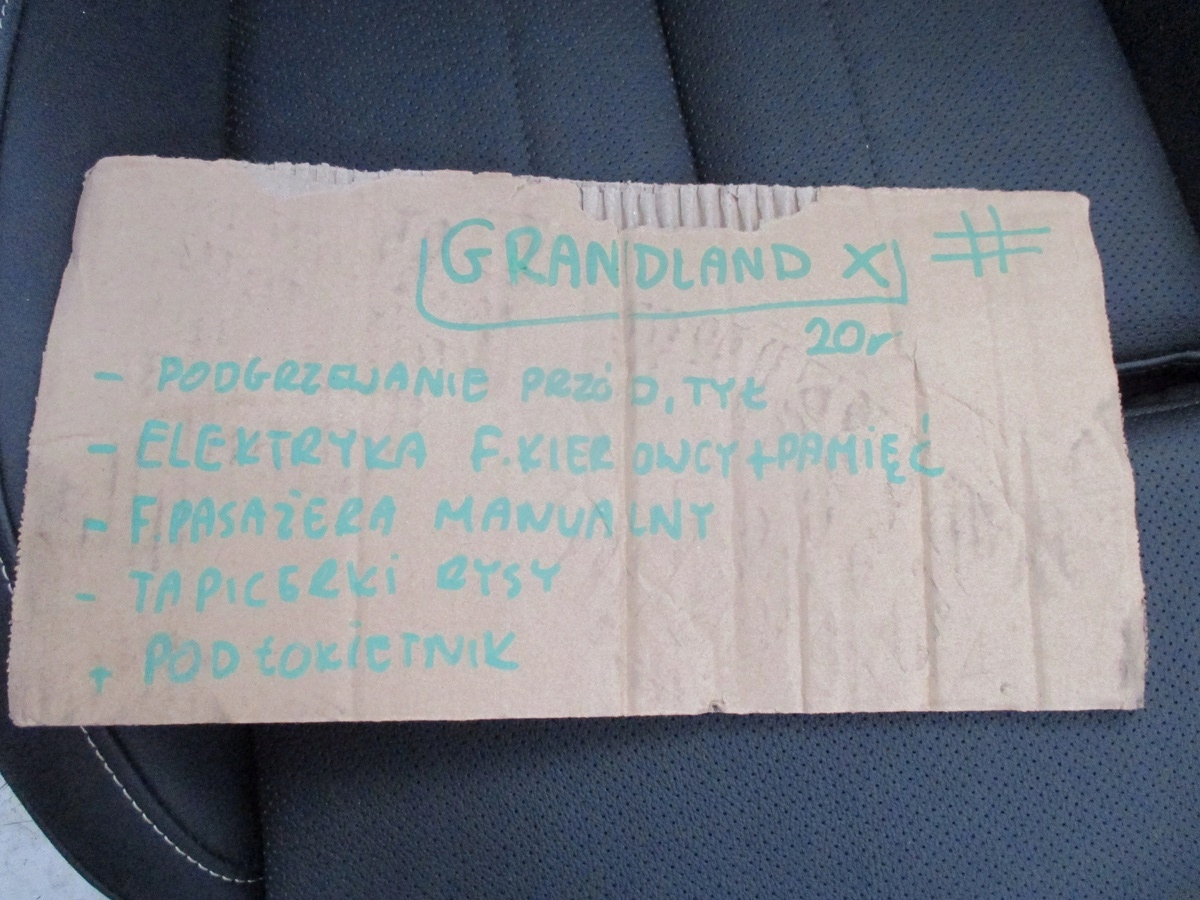 GRANDLAND X #
20r
- PODGRZEWANIE PRZÓD, TYŁ
- ELEKTRYKA F.KIEROWCY+PAMIĘĆ
- F.PASAŻERA MANUALNY
- TAPICERKI RYSY
+ PODŁOKIETNIK